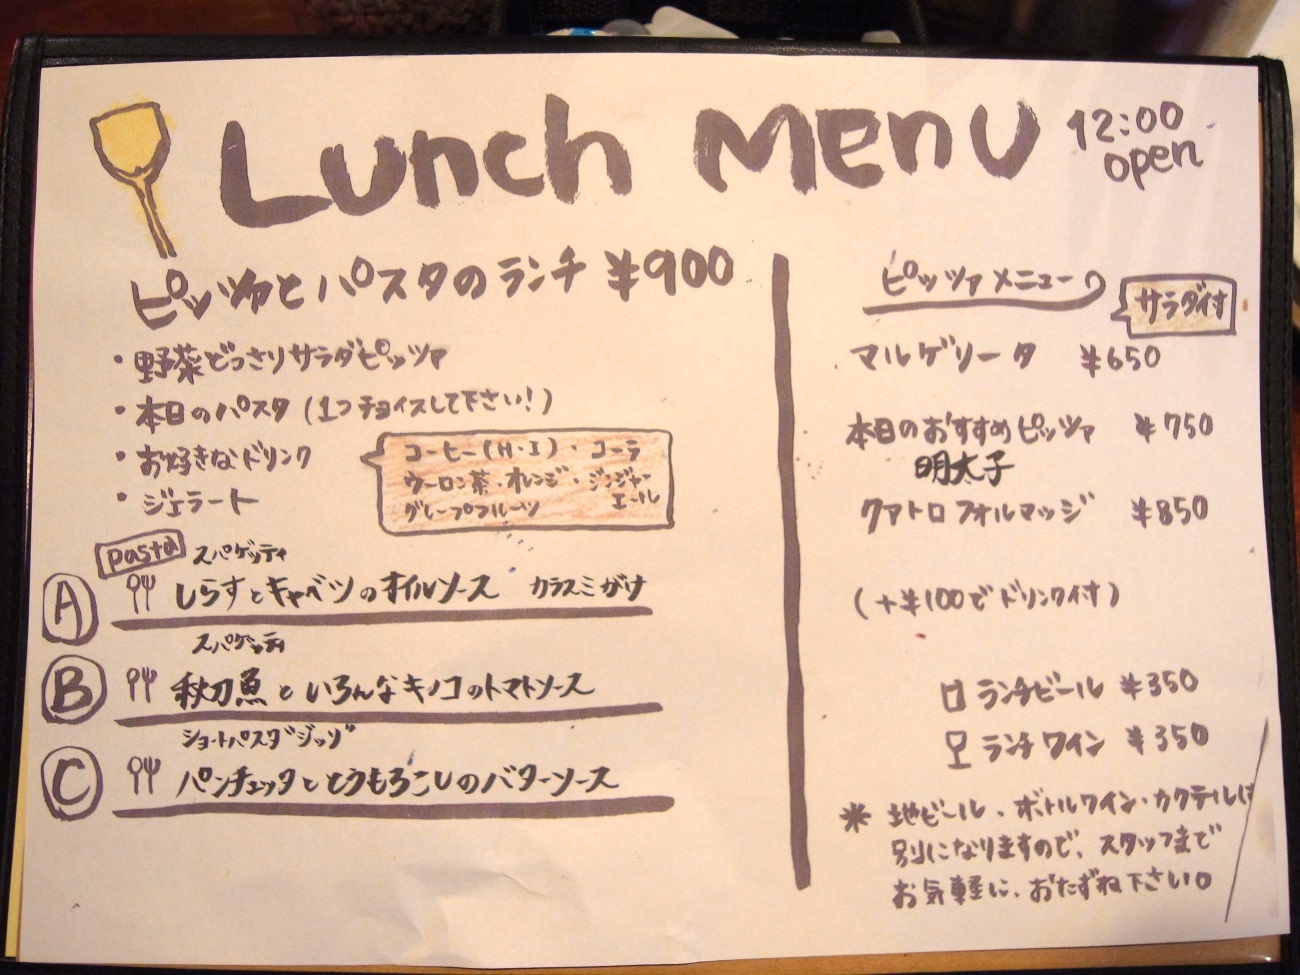 Lunch Menu
12:00
open
ピッツァとパスタのランチ ¥900
・野菜どっさりサラダピッツァ
・本日のパスタ (1つチョイスして下さい!)
・お好きなドリンク
・ジェラート
コーヒー(H・I)・コーラ
ウーロン茶・オレンジ・ジンジャー
エール
グレープフルーツ
pasta スパゲッティ
A しらすとキャベツのオイルソース カラスミがけ
スパゲッティ
B 秋刀魚といろんなキノコのトマトソース
ショートパスタ"ジッリ"
C パンチェッタととうもろこしのバターソース
ピッツァメニュー
サラダ付
マルゲリータ ¥650
本日のおすすめピッツァ ¥750
明太子
クァトロフォルマッジ ¥850
(+¥100でドリンク付)
ランチビール ¥350
ランチワイン ¥350
* 地ビール、ボトルワイン・カクテルは
別になりますので、スタッフまで
お気軽に、おたずね下さい。